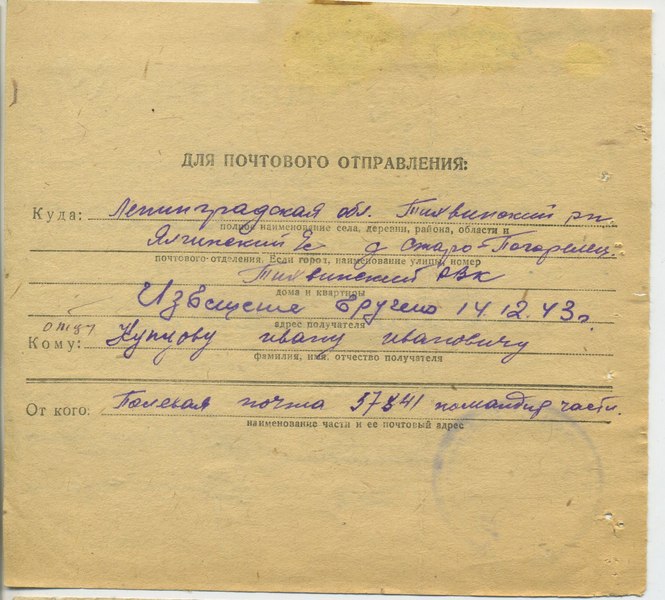 ДЛЯ ПОЧТОВОГО ОТПРАВЛЕНИЯ:
Куда: Ленинградская обл. Тихвинский р-н
полное наименование села, деревни, района, области и
с д Старо-Погорелец.
почтового отделения. Если город, наименование улицы, номер
Тихвинский РВК
дома и квартиры
Извещение вручено 14.12.43 г.
адрес получателя
отцу
Кому: Ивану Ивановичу
фамилия, имя, отчество получателя
От кого: Полевая почта 57841 командир части.
наименование части и ее почтовый адрес